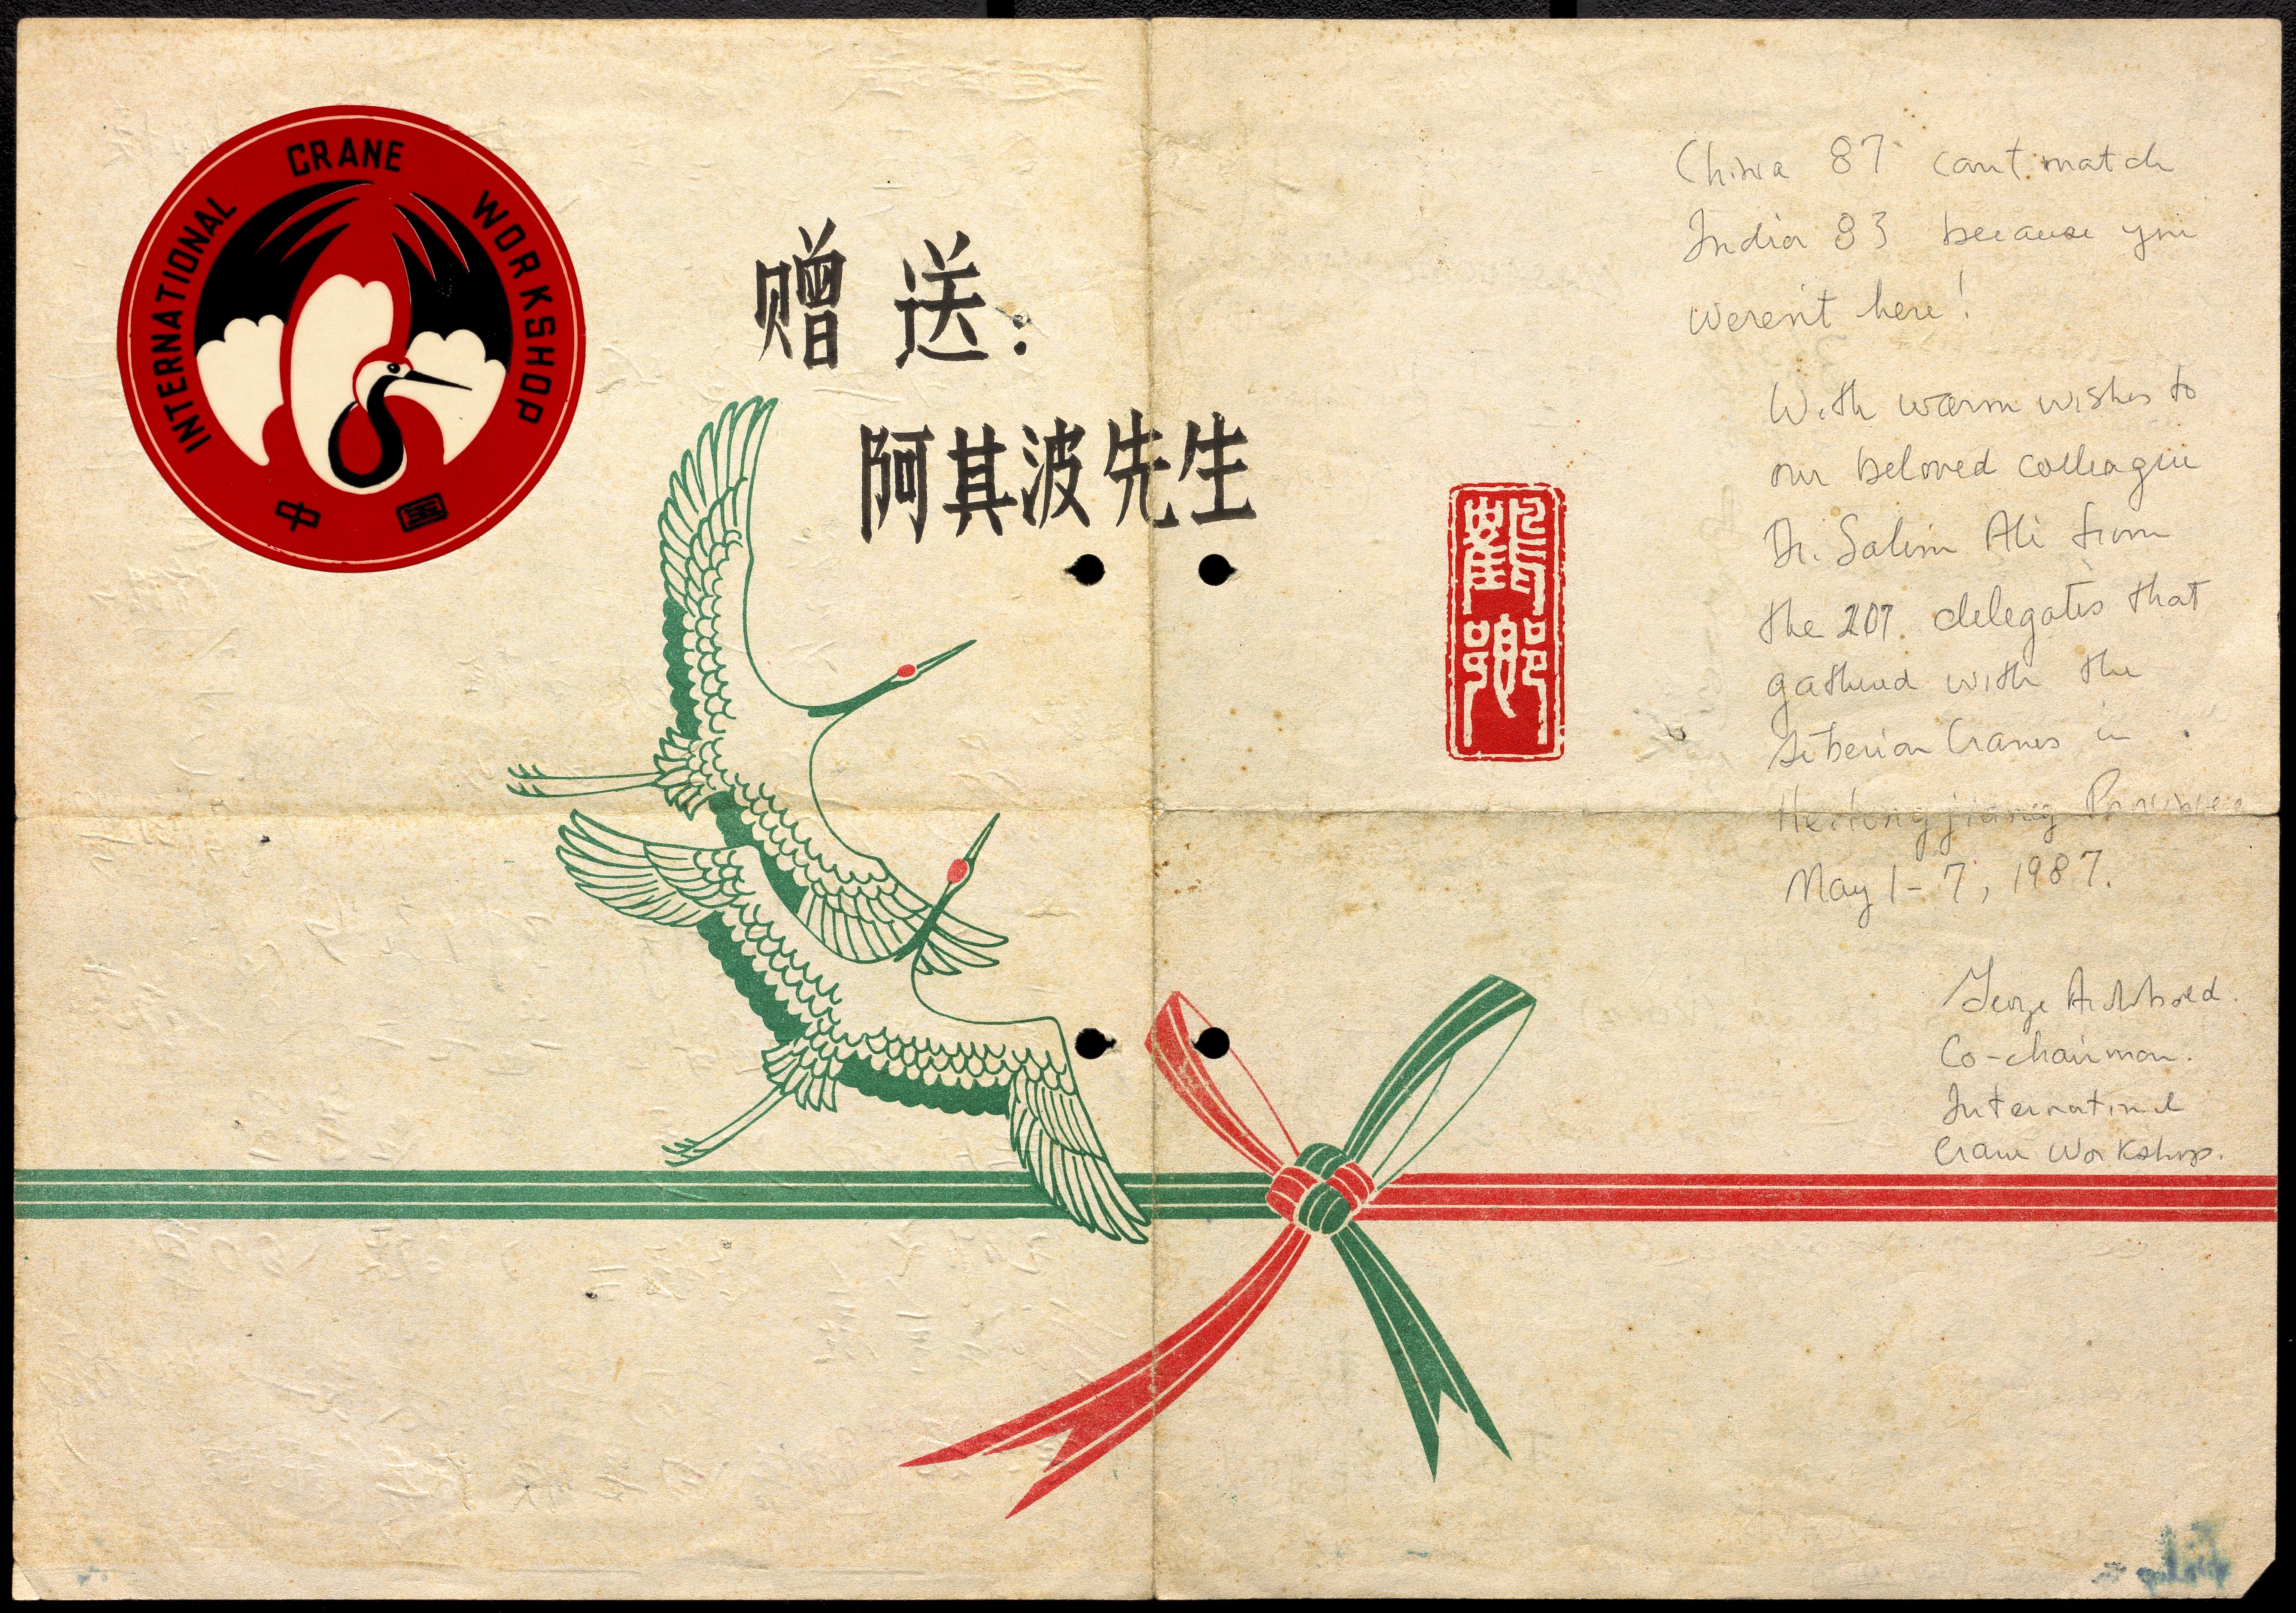 INTERNATIONAL CRANE WORKSHOP
中国
赠送:
阿其波先生
China 87 cant match
India 83 because you
weren't here!
With warm wishes to
our beloved colleague
Dr. Salim Ali from
the 207 delegates that
gathered with the
Siberian Cranes in
Heilongjiang Province
May 1-7, 1987.
George Archibald.
Co-chairman.
International
Crane Workshop.